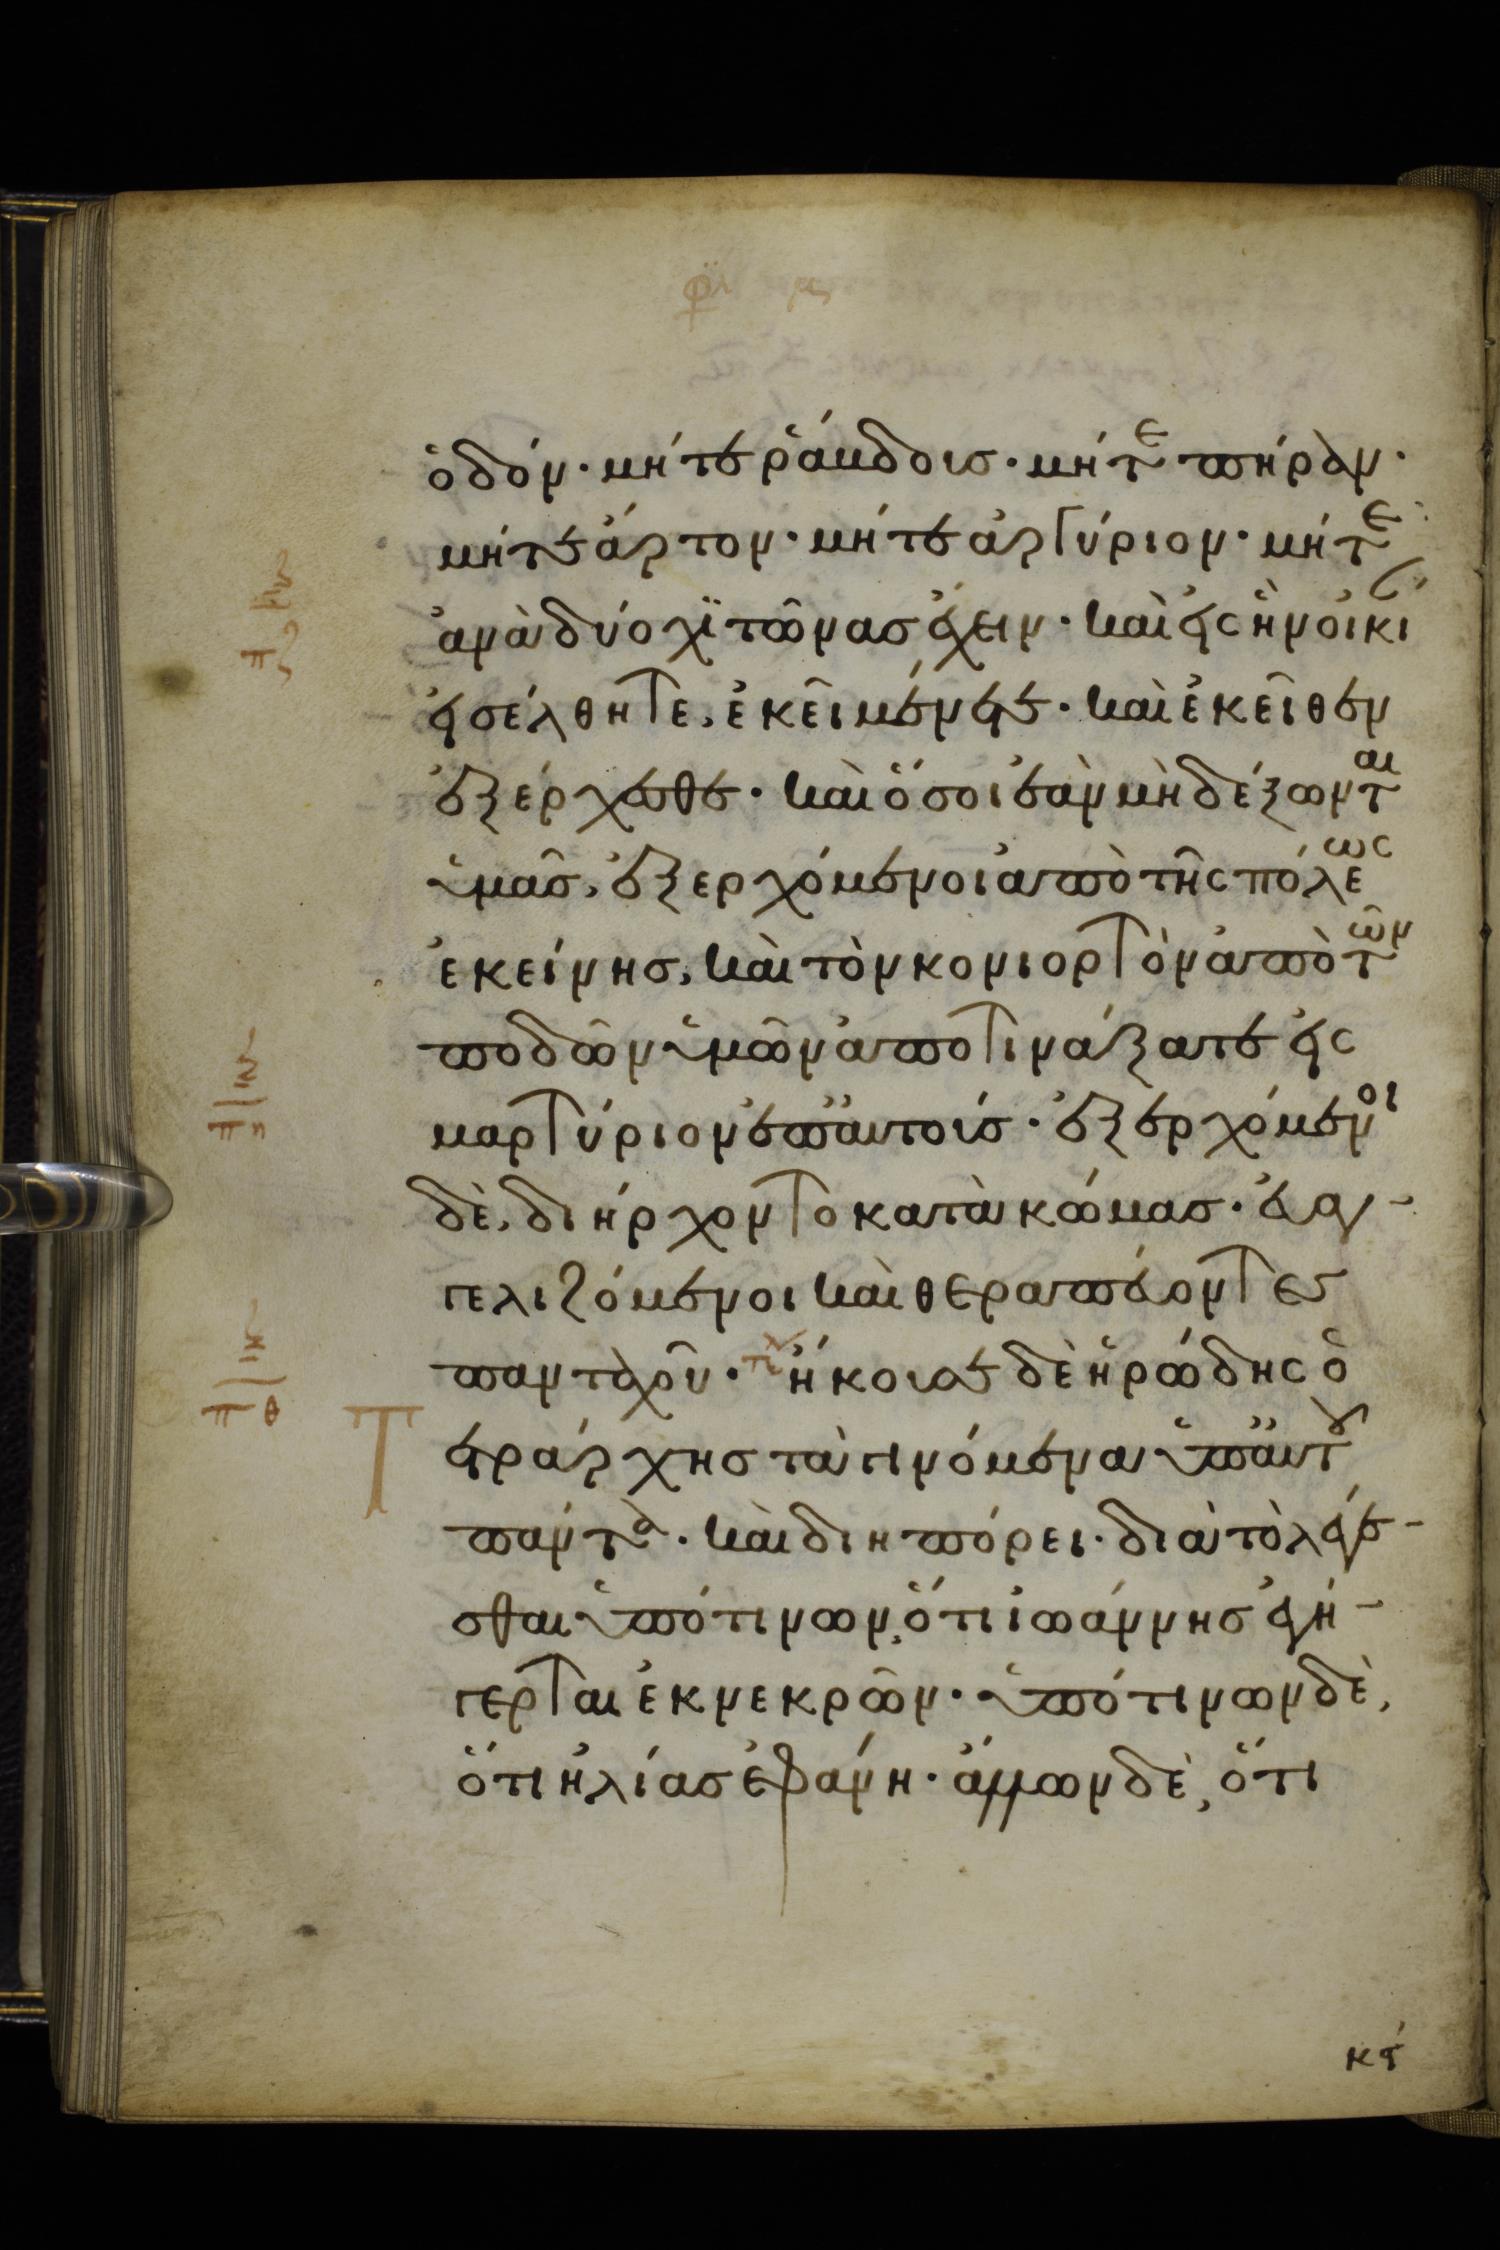 ὁδόν · μήτε ῥάβδους · μήτε πήραν ·
μήτε ἄρτον · μήτε ἀργύριον · μήτε
ἀνὰ δύο χϊτῶνας ἔχειν · καὶ εἰς ἣν οἰκί
εἰσέλθητε, ἐκεῖ μένετε · καὶ ἐκεῖθεν
ἐξέρχεσθε · καὶ ὅσοι ἐὰν μὴ δέξωνται
ὑμᾶς, ἐξερχόμενοι ἀπὸ τῆς πόλεως
ἐκείνης, καὶ τὸν κονιορτὸν ἀπὸ τῶν
ποδῶν ὑμῶν ἀποτινάξατε εἰς
μαρτύριον ἐπ' αὐτούς · ἐξερχόμενοι
δὲ, διήρχοντο κατὰ κώμας · εὐαγ-
γελιζόμενοι καὶ θεραπεύοντες
πανταχοῦ · ἤκουσε δὲ ἡρώδης ὁ
Τετράρχης τὰ γινόμενα ὑπ' αὐτοῦ
πάντα · καὶ διηπόρει · διὰ τὸ λέγε-
σθαι ὑπό τινων, ὅτι ἰωάννης ἐγή-
γερται ἐκ νεκρῶν · ὑπό τινων δὲ,
ὅτι ἠλίας ἐφάνη · ἄλλων δὲ, ὅτι